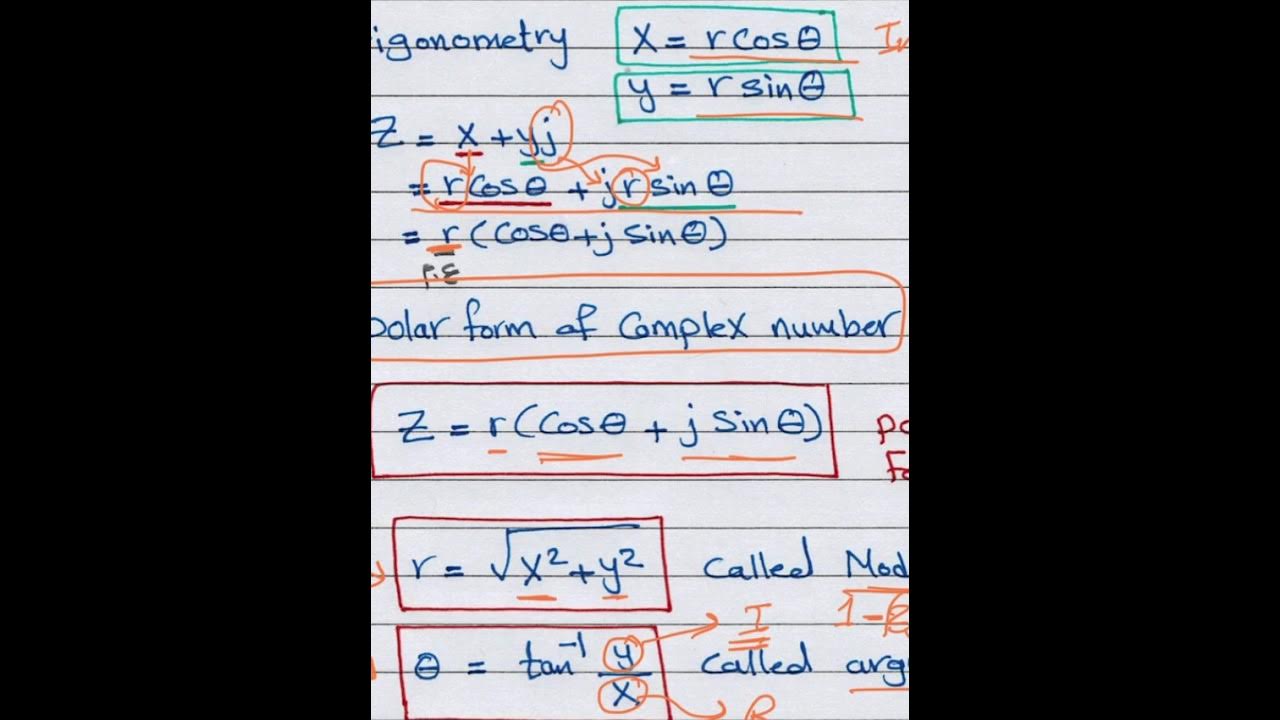 igonometry x = r cos θ
y = r sin θ
Z = x + yj
= r cos θ + j r sin θ
= r (cos θ + j sin θ)
polar form of Complex number
Z = r (cos θ + j sin θ)
r = √x² + y² called Mod
I
θ = tan⁻¹ y/x called arg
R